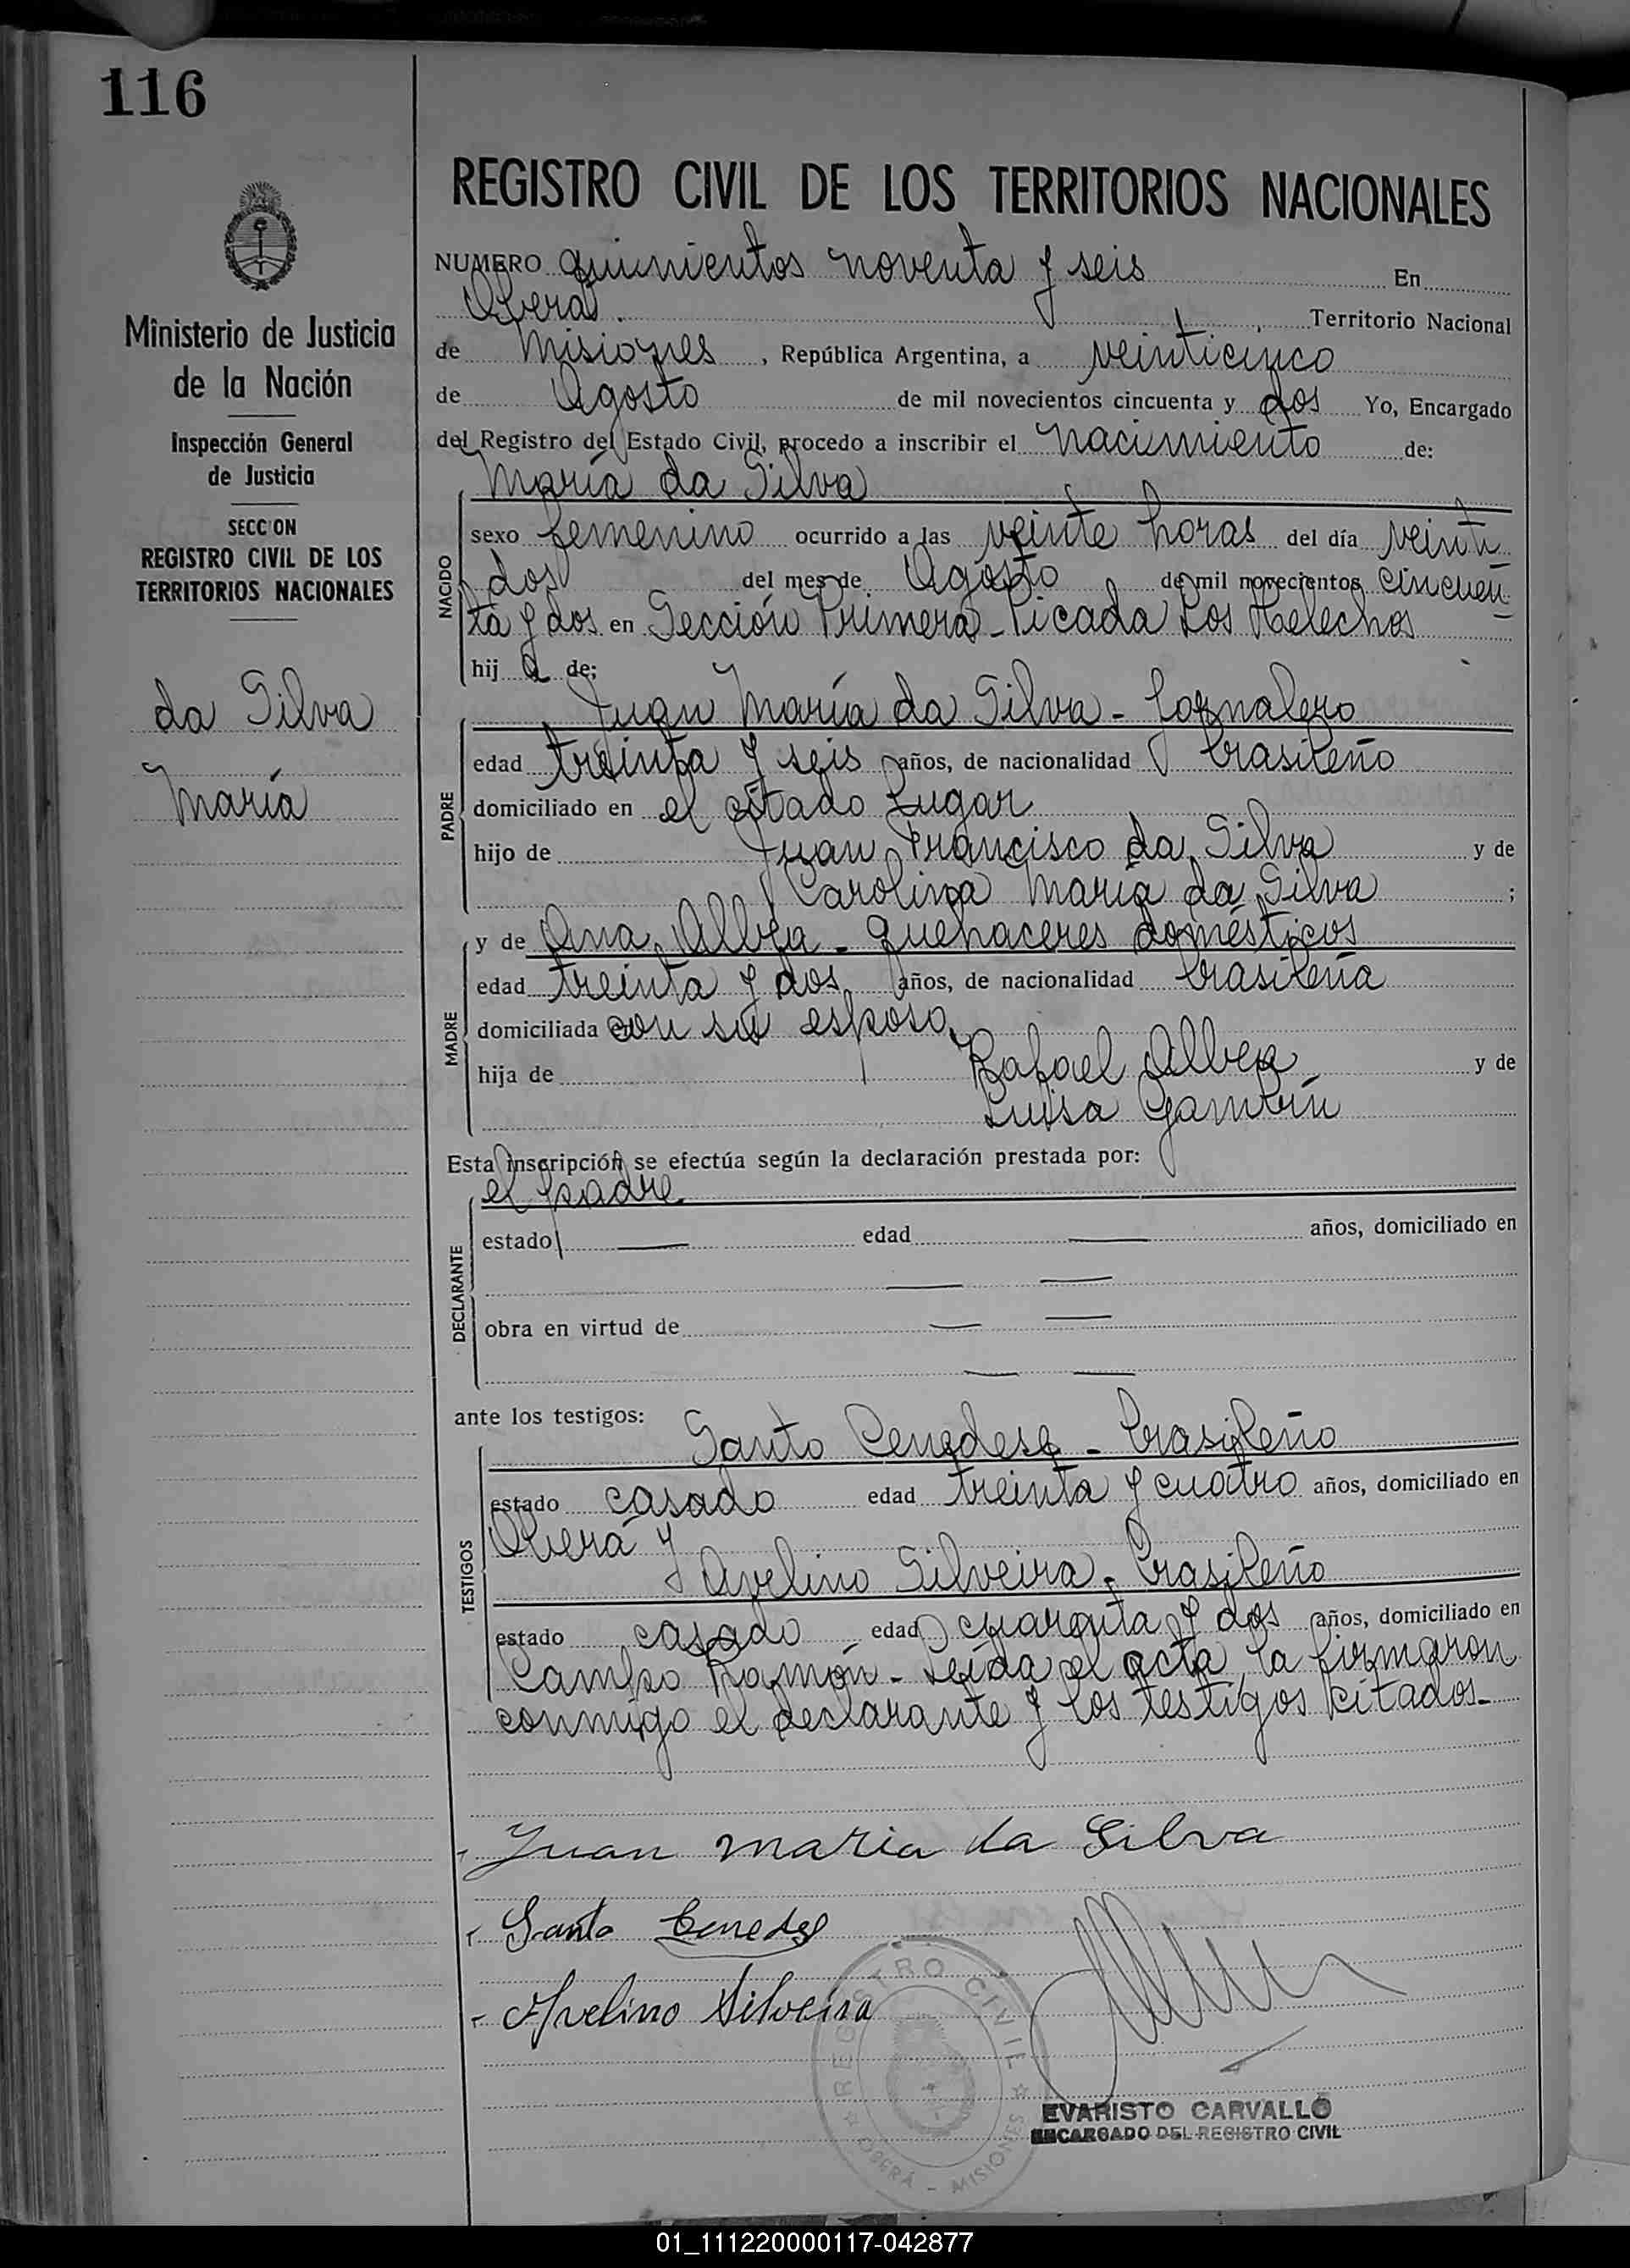 116
Ministerio de Justicia
de la Nación
Inspección General
de Justicia
SECCION
REGISTRO CIVIL DE LOS
TERRITORIOS NACIONALES
da Silva
María
REGISTRO CIVIL DE LOS TERRITORIOS NACIONALES
NUMERO quinientos noventa y seis En
Oberá. , Territorio Nacional
de Misiones , República Argentina, a veinticinco
de Agosto de mil novecientos cincuenta y dos Yo, Encargado
del Registro del Estado Civil, procedo a inscribir el nacimiento de:
María da Silva
NACIDO
sexo femenino ocurrido a las veinte horas del día veinti
dos del mes de Agosto de mil novecientos cincuen
ta y dos en Sección Primera - Picada Los Helechos
hij a de:
Juan María da Silva - Jornalero
PADRE
edad treinta y seis años, de nacionalidad brasileño
domiciliado en el citado lugar
hijo de Juan Francisco da Silva y de
Carolina María da Silva ;
MADRE
y de Ana - quehaceres domésticos
edad treinta y dos años, de nacionalidad brasileña
domiciliada con su esposo,
hija de Rafael y de
Luisa
Esta inscripción se efectúa según la declaración prestada por:
el padre
DECLARANTE
estado — edad — años, domiciliado en
— —
obra en virtud de — —
— —
ante los testigos:
TESTIGOS
Santo Cenedese - brasileño
estado casado edad treinta y cuatro años, domiciliado en
Oberá y
Avelino Silveira - brasileño
estado casado edad cuarenta y dos años, domiciliado en
Campo Ramón - Leída el acta, la firmaron
conmigo el declarante y los testigos citados -
Juan maria da Silva
Santo Cenedese
Avelino Silveira
REGISTRO CIVIL
OBERÁ - MISIONES
EVARISTO CARVALLO
ENCARGADO DEL REGISTRO CIVIL
01_111220000117-042877